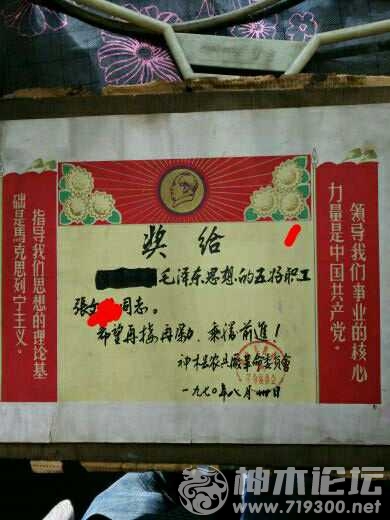 奖给
毛泽东思想的五好职工
張文 同志。
希望再接再励、乘勝前進!
神木县农具厰革命委員會
一九七〇年八月卅日
领导我们事业的核心
力量是中国共产党。
指导我们思想的理论基
础是馬克思列宁主义。
神木论坛
www.719300.net